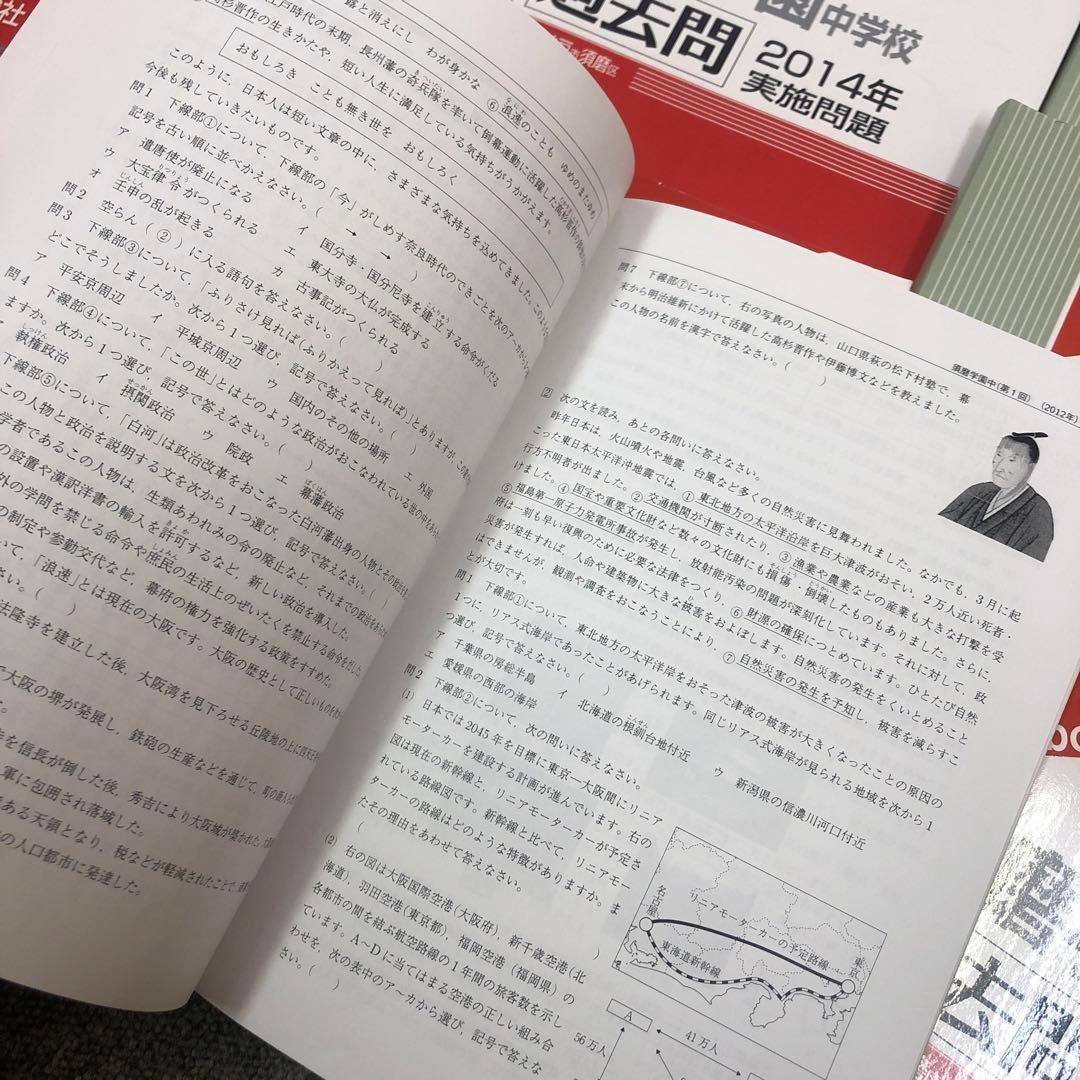 園中学校
過去問
2014年
実施問題
須磨区
社
露と消えにし わが身かな
⑥浪速のことも ゆめのまたゆめ
江戸時代の末期，長州藩の奇兵隊を率いて倒幕運動に活躍した高杉晋作の
高杉晋作の生きかたや，短い人生に満足している気持ちがうかがえます。
おもしろき ことも無き世を おもしろく
このように，日本人は短い文章の中に，さまざまな気持ちを込めてきました。このような
今後も残していきたいものです。
問1 下線部①について，下線部の「今」がしめす奈良時代のできごとを次のア～カから
記号を古い順に並べかえなさい。( → → )
ア 遣唐使が廃止になる
イ 国分寺・国分尼寺を建立する命令がくだる
ウ 大宝律令がつくられる
エ 東大寺の大仏が完成する
オ 壬申の乱が起きる
カ 古事記がつくられる
問2 空らん(②)に入る語句を答えなさい。( )
問3 下線部③について，「ふりさけ見れば(ふりかえって見れば)」とありますが，この
どこでそうしましたか。次から1つ選び，記号で答えなさい。( )
ア 平安京周辺 イ 平城京周辺 ウ 国内のその他の場所 エ 外国
問4 下線部④について，「この世」とはどのような政治がおこなわれている世の中を
ますか。次から1つ選び，記号で答えなさい。( )
ア 執権政治 イ 摂関政治 ウ 院政 エ 幕藩政治
下線部⑤について，「白河」は政治改革をおこなった白河藩出身の人物とその政治
この人物と政治を説明する文を次から1つ選び，記号で答えなさい。( )
学者であるこの人物は，生類あわれみの令の廃止など，それまでの政治を
の設置や漢訳洋書の輸入を許可するなど，新しい政治を導入した。
外の学問を禁じる命令や庶民の生活上のぜいたくを禁止する命令をだした
の制定や参勤交代など，幕府の権力を強化する政策をすすめた。
いて，「浪速」とは現在の大阪です。大阪の歴史として正しいものを
さい。( )
法隆寺を建立した後，大阪湾を見下ろせる丘陵地の上に四天王寺
で大阪の堺が発展し，鉄砲の生産などを通じて，町の商人
を信長が倒した後，秀吉により大坂城が築かれた。
軍に包囲され落城した。
ある天領となり，税などが軽減されたことで，
の人口都市に発達した。
須磨学園中(第1回) (2012年)
問7 下線部⑦について，右の写真の人物は，山口県萩の松下村塾で，幕
末から明治維新にかけて活躍した高杉晋作や伊藤博文などを教えました。
この人物の名前を漢字で答えなさい。( )
2 次の文を読み，あとの各問いに答えなさい。
昨年日本は，火山噴火や地震，台風など多くの自然災害に見舞われました。なかでも，3月に起
こった東日本太平洋沖地震では，①東北地方の太平洋沿岸を巨大津波がおそい，2万人近い死者・
行方不明者が出ました。②交通機関が寸断されたり，③漁業や農業などの産業も大きな打撃を受
けました。④国宝や重要文化財など数々の文化財にも損傷・倒壊したものもありました。さらに，
⑤福島第一原子力発電所事故が発生し，放射能汚染の問題が深刻化しています。それに対して，政
府は一刻も早い復興のために必要な法律をつくり，⑥財源の確保につとめています。ひとたび自然
災害が発生すれば，人命や建築物に大きな被害をおよぼします。自然災害の発生をくいとめること
はできませんが，観測や調査をおこなうことにより，⑦自然災害の発生を予知し，被害を減らすこ
とが大切です。
問1 下線部①について，東北地方の太平洋岸をおそった津波の被害が大きくなったことの原因の
1つに，リアス式海岸であったことがあげられます。同じリアス式海岸が見られる地域を次から1
つ選び，記号で答えなさい。( )
ア 千葉県の房総半島 イ 北海道の根釧台地付近 ウ 新潟県の信濃川河口付近
エ 愛媛県の西部の海岸
問2 下線部②について，次の問いに答えなさい。
(1) 日本では2045年を目標に東京－大阪間にリニア
モーターカーを建設する計画が進んでいます。右の
図は現在の新幹線と，リニアモーターカーが予定さ
れている路線図です。新幹線と比べて，リニアモー
ターカーの路線はどのような特徴がありますか。ま
たその理由をあわせて答えなさい。
( )
(2) 右の図は大阪国際空港(大阪府)，新千歳空港(北
海道)，羽田空港(東京都)，福岡空港(福岡県)の
各都市の間を結ぶ航空路線の1年間の旅客数を示し
ています。A～Dに当てはまる空港の正しい組み合
わせを，次の表中のア～カから選び，記号で答えな
さい。( )
名古屋
リニアモーターカーの予定路線
東海道新幹線
東京
A
41万人
56万人